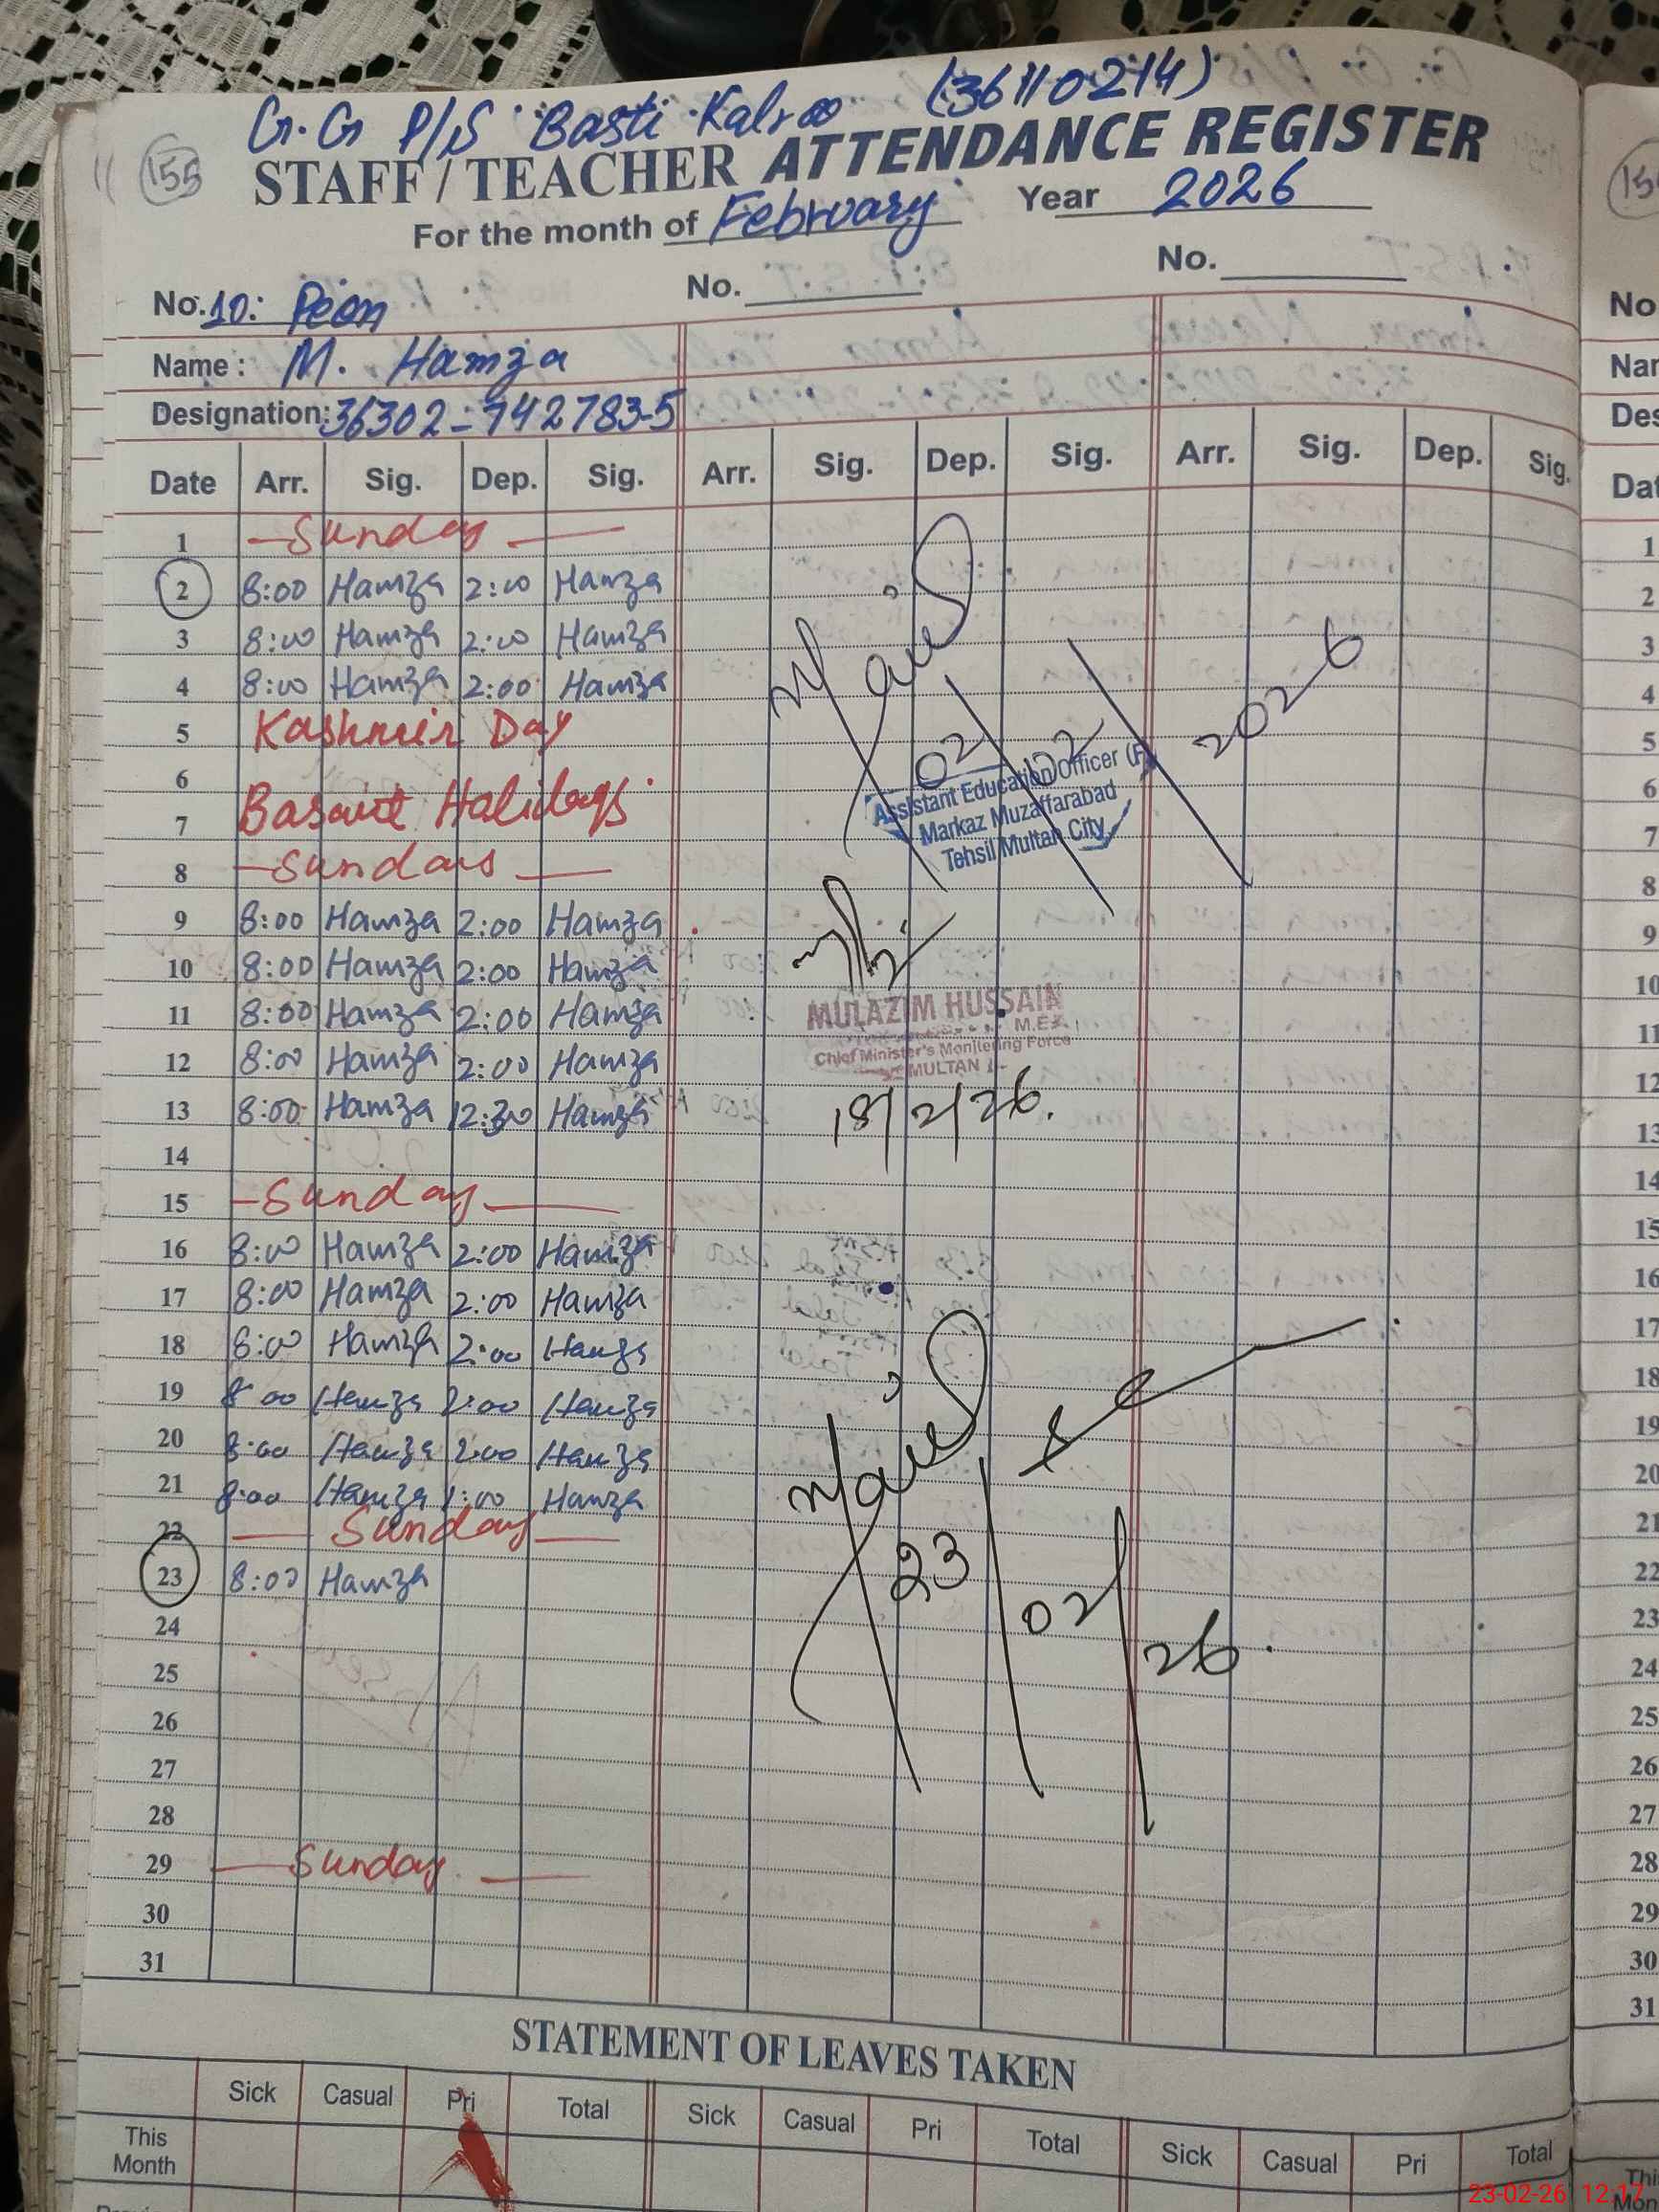 G.G P/S Basti Kalroo (36110214)
155
STAFF / TEACHER ATTENDANCE REGISTER
For the month of February Year 2026
No.10: Peon No. No.
Name : M. Hamza
Designation: 36302-7427835
Date Arr. Sig. Dep. Sig. Arr. Sig. Dep. Sig. Arr. Sig. Dep. Sig.
1 - Sunday -
2 8:00 Hamza 2:00 Hamza
3 8:00 Hamza 2:00 Hamza
4 8:00 Hamza 2:00 Hamza
5 Kashmir Day
6
7 Basant Halidays
8 - Sundays -
9 8:00 Hamza 2:00 Hamza
10 8:00 Hamza 2:00 Hamza
11 8:00 Hamza 2:00 Hamza
12 8:00 Hamza 2:00 Hamza
13 8:00 Hamza 12:30 Hamza
14
15 - Sunday -
16 8:00 Hamza 2:00 Hamza
17 8:00 Hamza 2:00 Hamza
18 8:00 Hamza 2:00 Hamza
19 8:00 Hamza 2:00 Hamza
20 8:00 Hamza 2:00 Hamza
21 8:00 Hamza 1:00 Hamza
22 - Sunday -
23 8:00 Hamza
24
25
26
27
28
29 - Sunday -
30
31
02/02/2026
Assistant Education Officer (F)
Markaz Muzaffarabad
Tehsil Multan City
MULAZIM HUSSAIN
M.E.A
Chief Minister's Monitering Force
MULTAN
18/2/26.
23/02/26.
STATEMENT OF LEAVES TAKEN
Sick Casual Pri Total Sick Casual Pri Total Sick Casual Pri Total
This
Month
No
1
2
3
4
5
6
7
8
9
10
11
12
13
14
15
16
17
18
19
20
21
22
23
24
25
26
27
28
29
30
31
23-02-26 12:17